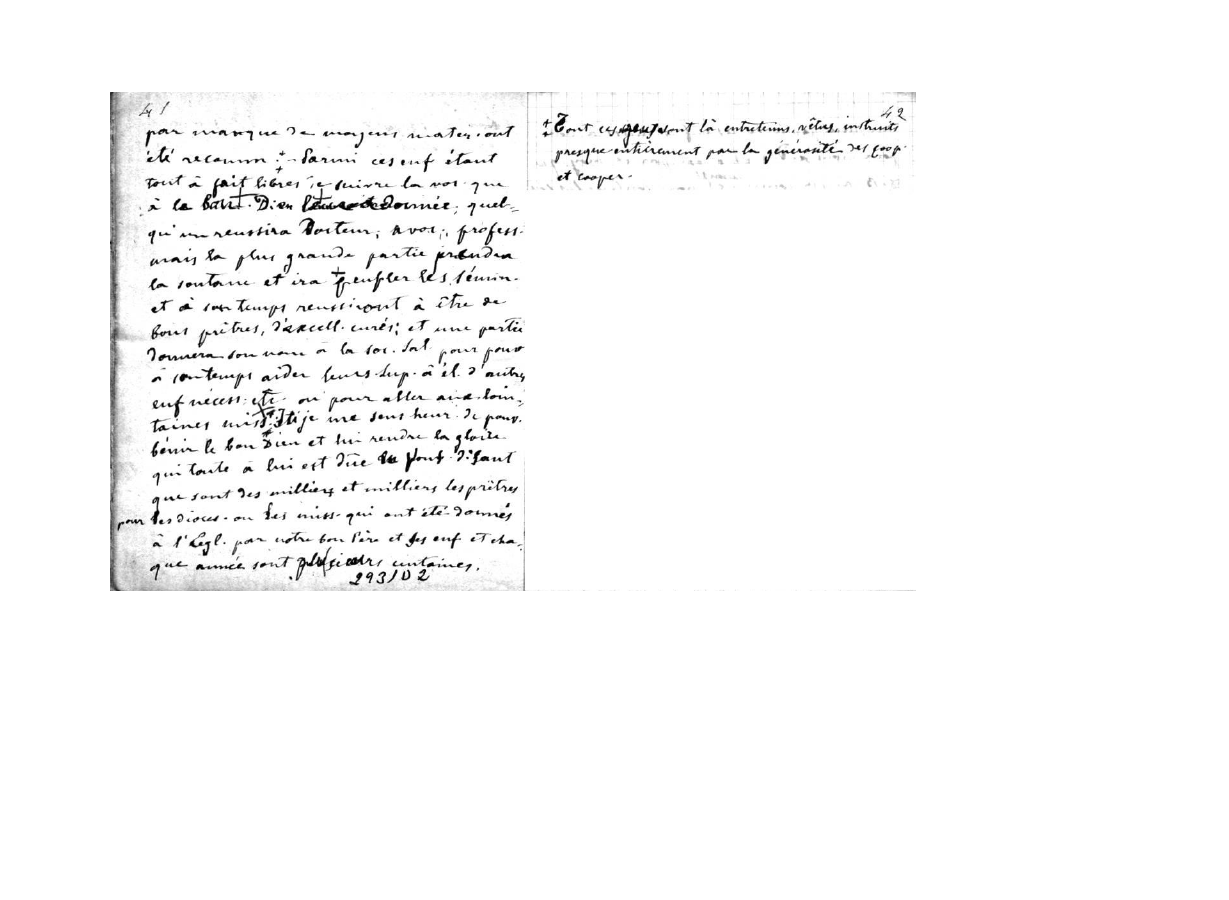 41
par manque de moyens mater. ont
été reconnu : ‡ Parmi ces enf étant
tout à fait libres de suivre la voc. que
à le bon Dieu donnée; quel-
qu'un reussira Docteur; avoc; profess.
mais la plus grande partie prendra
la soutane et ira peupler les sémin.
et à son temps reussiront à être de
bons prêtres, d'excell. curés; et une partie
donnera son nom à la soc. Sal. pour pouv
à son temps aider leurs Sup. à él. d'autres
enf nécess. etc. ou pour aller aux loin-
taines miss. Et je me sens heur. de pouv.
bénir le bon Dieu et lui rendre la gloire
qui toute à lui est dûe disant
que sont des milliers et milliers les prêtres
pour les dioces. ou les miss. qui ont été donnés
à l'Egl. par notre bon Père et ses enf et cha-
que année sont plusieurs centaines.
293/D2
42
‡ Tout ces sont là entretenus, vêtus, instruits
presque entièrement par la générosité des coop.
et cooper.